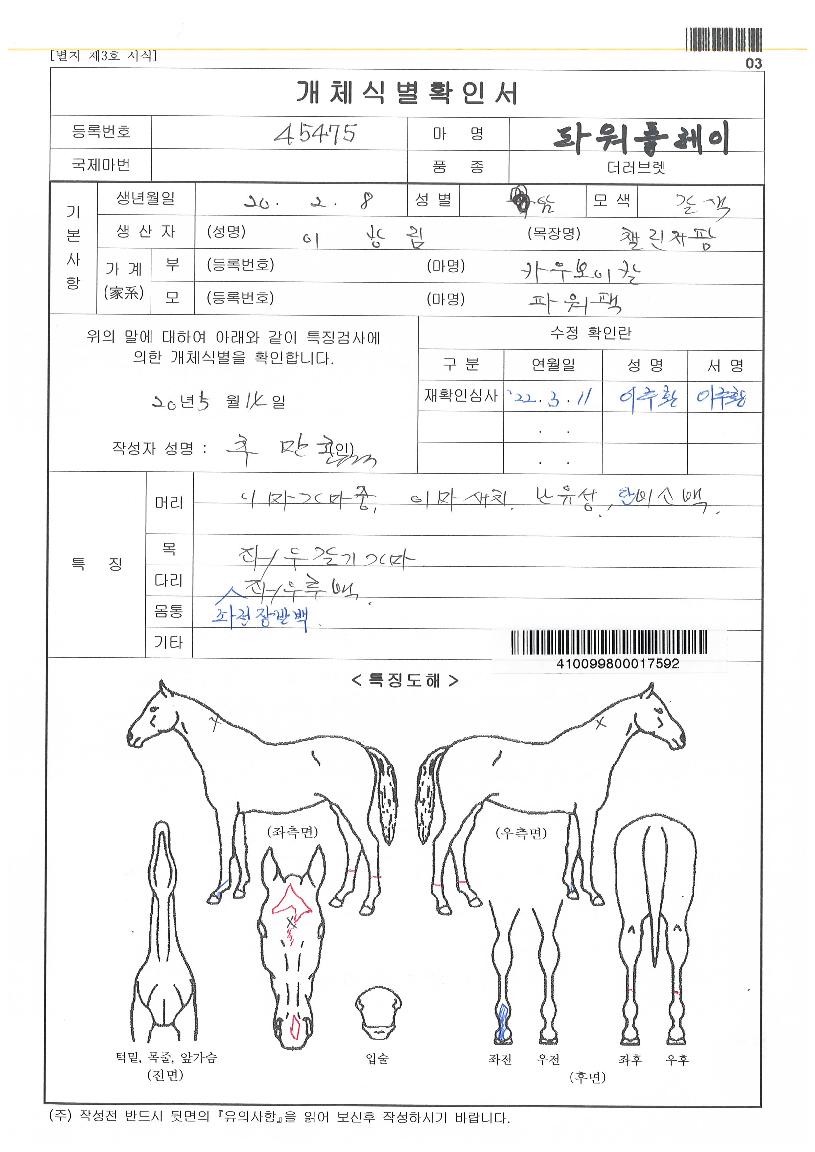 [별지 제3호 서식]
03
개체식별확인서
등록번호 45475 마 명 파워플레이
국제마번 품 종 더러브렛
기본사항
생년월일 20. 2. 8 성 별 암 모 색 갈색
생 산 자 (성명) 이 창 림 (목장명) 챌린저팜
가 계 (家系) 부 (등록번호) (마명) 카우보이칼
모 (등록번호) (마명) 파워팩
위의 말에 대하여 아래와 같이 특징검사에
의한 개체식별을 확인합니다.
20년 5 월 14 일
작성자 성명 : 추 만 (인)
수정 확인란
구 분 연월일 성 명 서 명
재확인심사 '22. 3. 11 이주환 이주환
. .
. .
특 징
머리 이마가마중, 이마새치, 난유성, 단비소백.
목 좌/우갈기가마
다리 좌/우후백.
몸통 좌전장반백.
기타
410099800017592
< 특징도해 >
(좌측면) (우측면)
턱밑, 목줄, 앞가슴
(전면)
입술
좌전 우전 좌후 우후
(후면)
(주) 작성전 반드시 뒷면의 『유의사항』을 읽어 보신후 작성하시기 바랍니다.